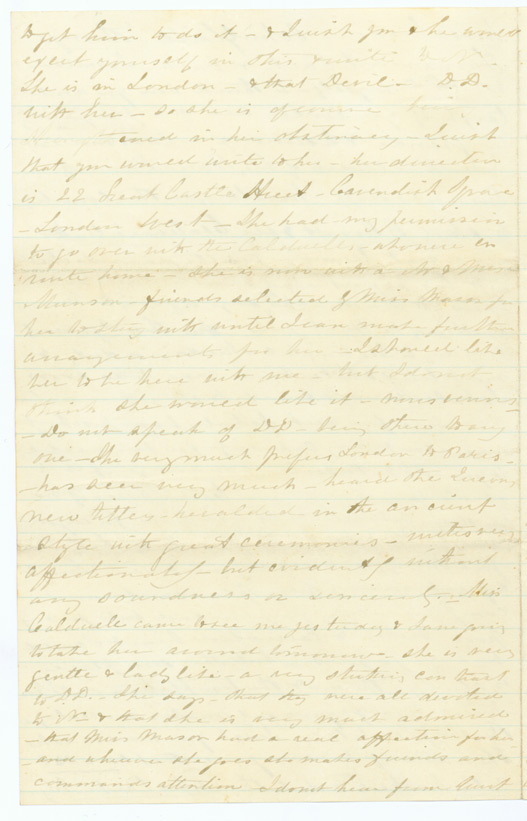 to get him to do it - & I wish you & she would
exert yourself in this & write to N.
She is in London - & that Devil - D.D.
with her - so she is of course
in her obstinacy - I wish
that you would write to her - her direction
is 22 Great Castle Street - Cavendish Square
- London West - She had my permission
to go over with the Caldwells - who were en
route home - She is now with a Mr & Mrs
Munson - friends selected by Miss Mason for
her to stay with until I can make further
arrangements for her - I should like
her to be here with me - but I do not
think she would like it
- Do not speak of D.D. - being there to any
one - She very much prefers London to Paris -
- has seen very much - heard the Queen's
new titles - heralded in the ancient
style with great ceremonies - writes very
affectionately - but evidently without
any soundness or sincerity - Miss
Caldwell came to see me yesterday & I am going
to take her around tomorrow she is very
gentle & ladylike - a very striking contrast
to D.D. - She says - that they were all devoted
to N - & that she is very much admired
- that Miss Mason had a real affection for her
- and wherever she goes she makes friends and
commands attention - I do not hear from Aunt